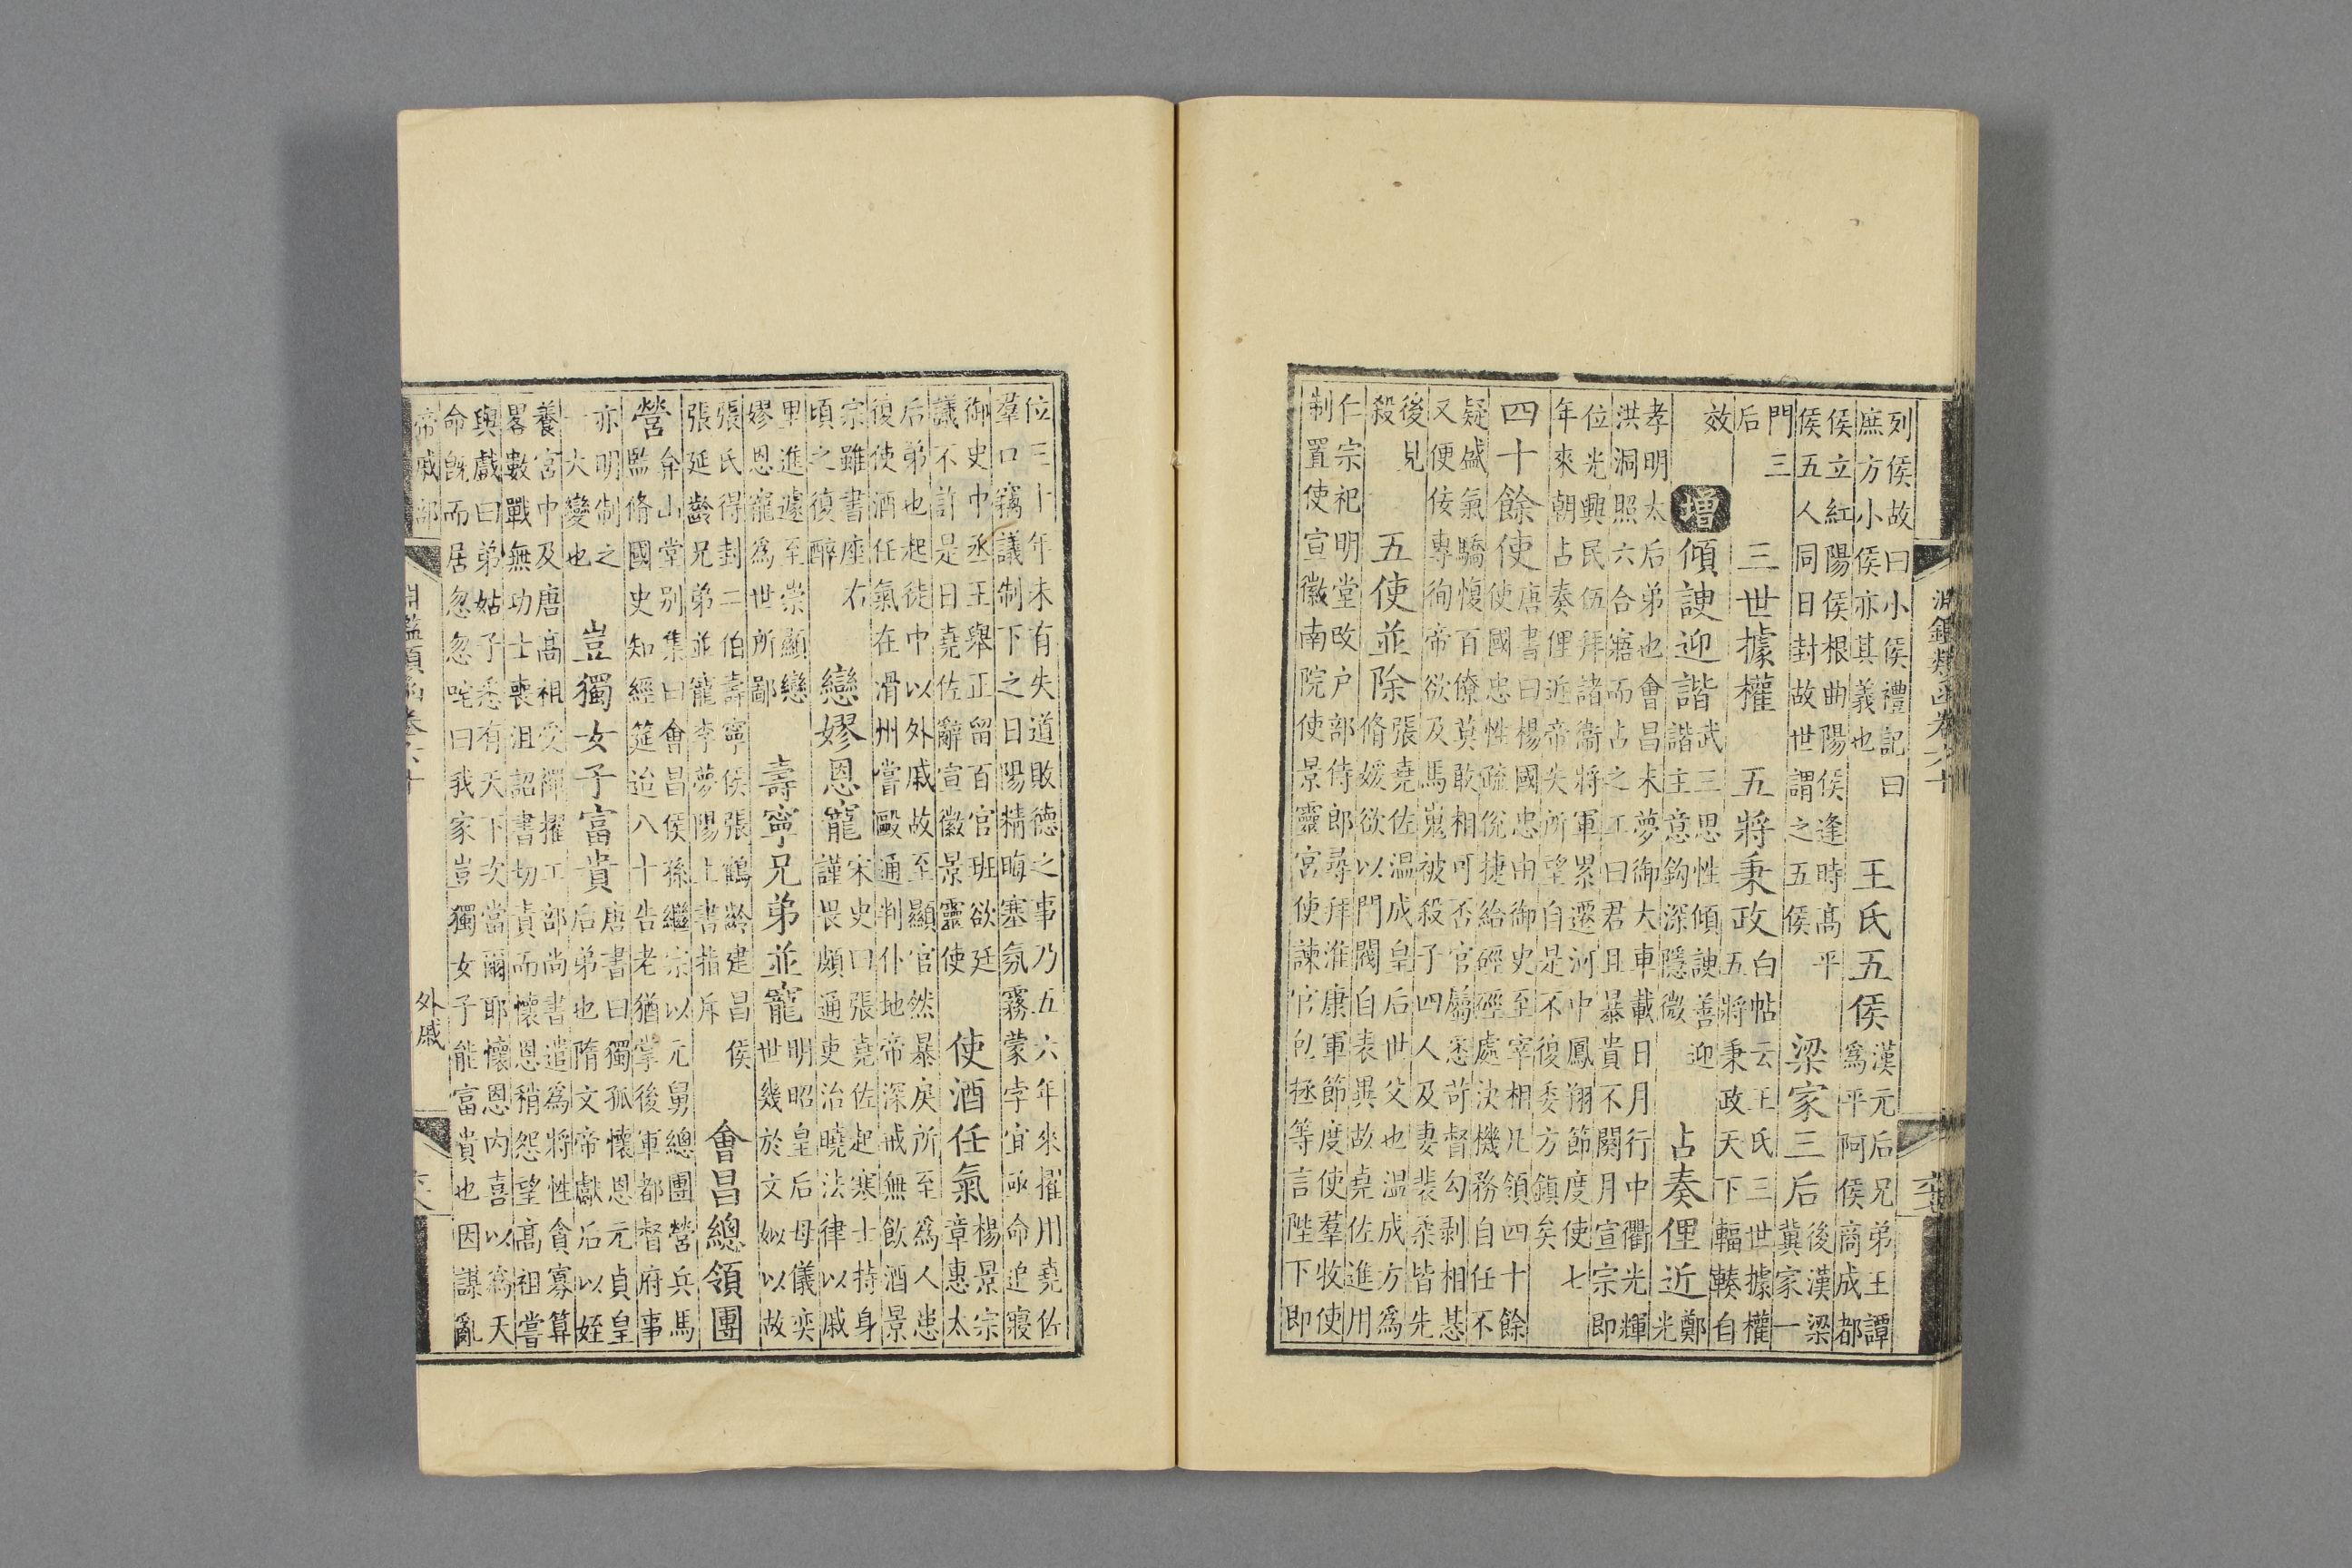 淵鑑類函卷六十
列侯故曰小侯禮記曰
庶方小侯亦其義也
王氏五侯
漢元后兄弟王譚
為平阿侯商成都
侯立紅陽侯根曲陽侯逢時高平
侯五人同日封故世謂之五侯
梁家三后
後漢梁
冀家一
門三
后
三世據權
五將秉政
白帖云王氏三世據權
五將秉政天下輻輳自
效
增
傾諛迎諧
武三思性傾諛善迎
諧主意鈎深隱微
占奏俚近
鄭
光
孝明太后弟也會昌末夢御大車載日月行中衢光輝
洪洞照六合寤而占之工曰君且暴貴不閱月宣宗即
位光興民伍拜諸衛將軍累遷河中鳳翔節度使七
年來朝占奏俚近帝失所望自是不復委方鎮矣
四十餘使
唐書曰楊國忠由御史至宰相凡領四十餘
使國忠性疏侻捷給硜硜處決機務自任不
疑盛氣驕愎百僚莫敢相可否官屬悉苛督勾剥相甚
又便佞專徇帝欲及馬嵬被殺子四人及妻裴柔皆先
後見
殺
五使並除
張堯佐温成皇后世父也温成方為
脩媛欲以門閥自表異故堯佐進用
仁宗祀明堂改户部侍郎尋拜淮康軍節度使羣牧使
制置使宣徽南院使景靈宮使諫官包拯等言陛下即
位三十年未有失道敗德之事乃五六年來擢用堯佐
羣口竊議制下之日陽精晦塞氛霧蒙孛宜亟命追寢
御史中丞王舉正留百官班欲廷
議不許是日堯佐辭宣徽景靈使
使酒任氣
楊景宗
章惠太
后弟也起徒中以外戚故至顯官然暴戾所至為人患
復使酒任氣在滑州嘗毆通判仆地帝深戒無飲酒景
宗雖書座右
頃之復醉
戀嫪恩寵
宋史曰張堯佐起寒士持身
謹畏頗通吏治曉法律以戚
里進遽至崇顯戀
嫪恩寵為世所鄙
壽寧兄弟並寵
明昭皇后母儀奕
世幾於文姒以故
張氏得封二伯壽寧侯張鶴齡建昌侯
張延齡兄弟並寵李夢陽上書指斥
會昌總領團
營
弇山堂别集曰會昌侯孫繼宗以元舅總團營兵馬
監脩國史知經筵迨八十告老猶掌後軍都督府事
亦明制之
一大變也
豈獨女子富貴
唐書曰獨孤懷恩元貞皇
后弟也隋文帝獻后以姪
養宮中及唐高祖受禪擢工部尚書遣為將性貪寡算
畧數戰無功士喪沮詔書切責而懷恩稍怨望高祖嘗
與戲曰弟姑子悉有天下次當爾耶懷恩内喜以為天
命旣而居忽忽咤曰我家豈獨女子能富貴也因謀亂
帝戚部
淵鑑類函卷六十
外戚